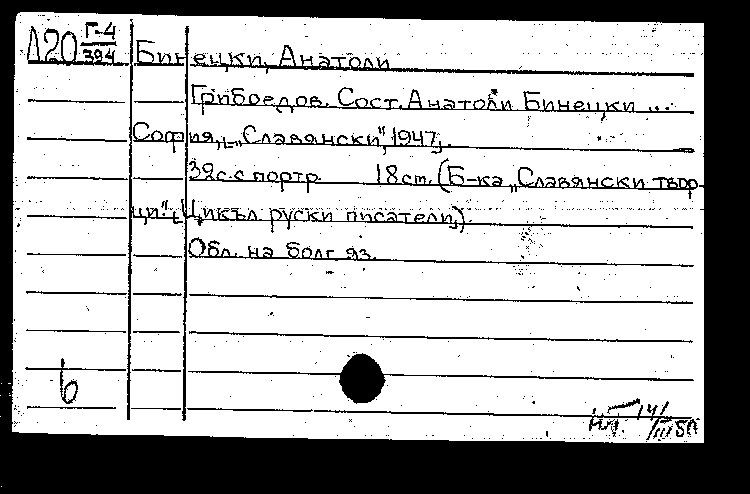 Л20 Г-4
394
Бинецки, Анатоли
Грибоедов. Сост. Анатоли Бинецки ...
София, „Славянски", 1947.
32с. с портр. 18 см. (Б-ка „Славянски твор-
ци". Цикъл руски писатели).
Обл. на болг. яз.
6
14/
III 50